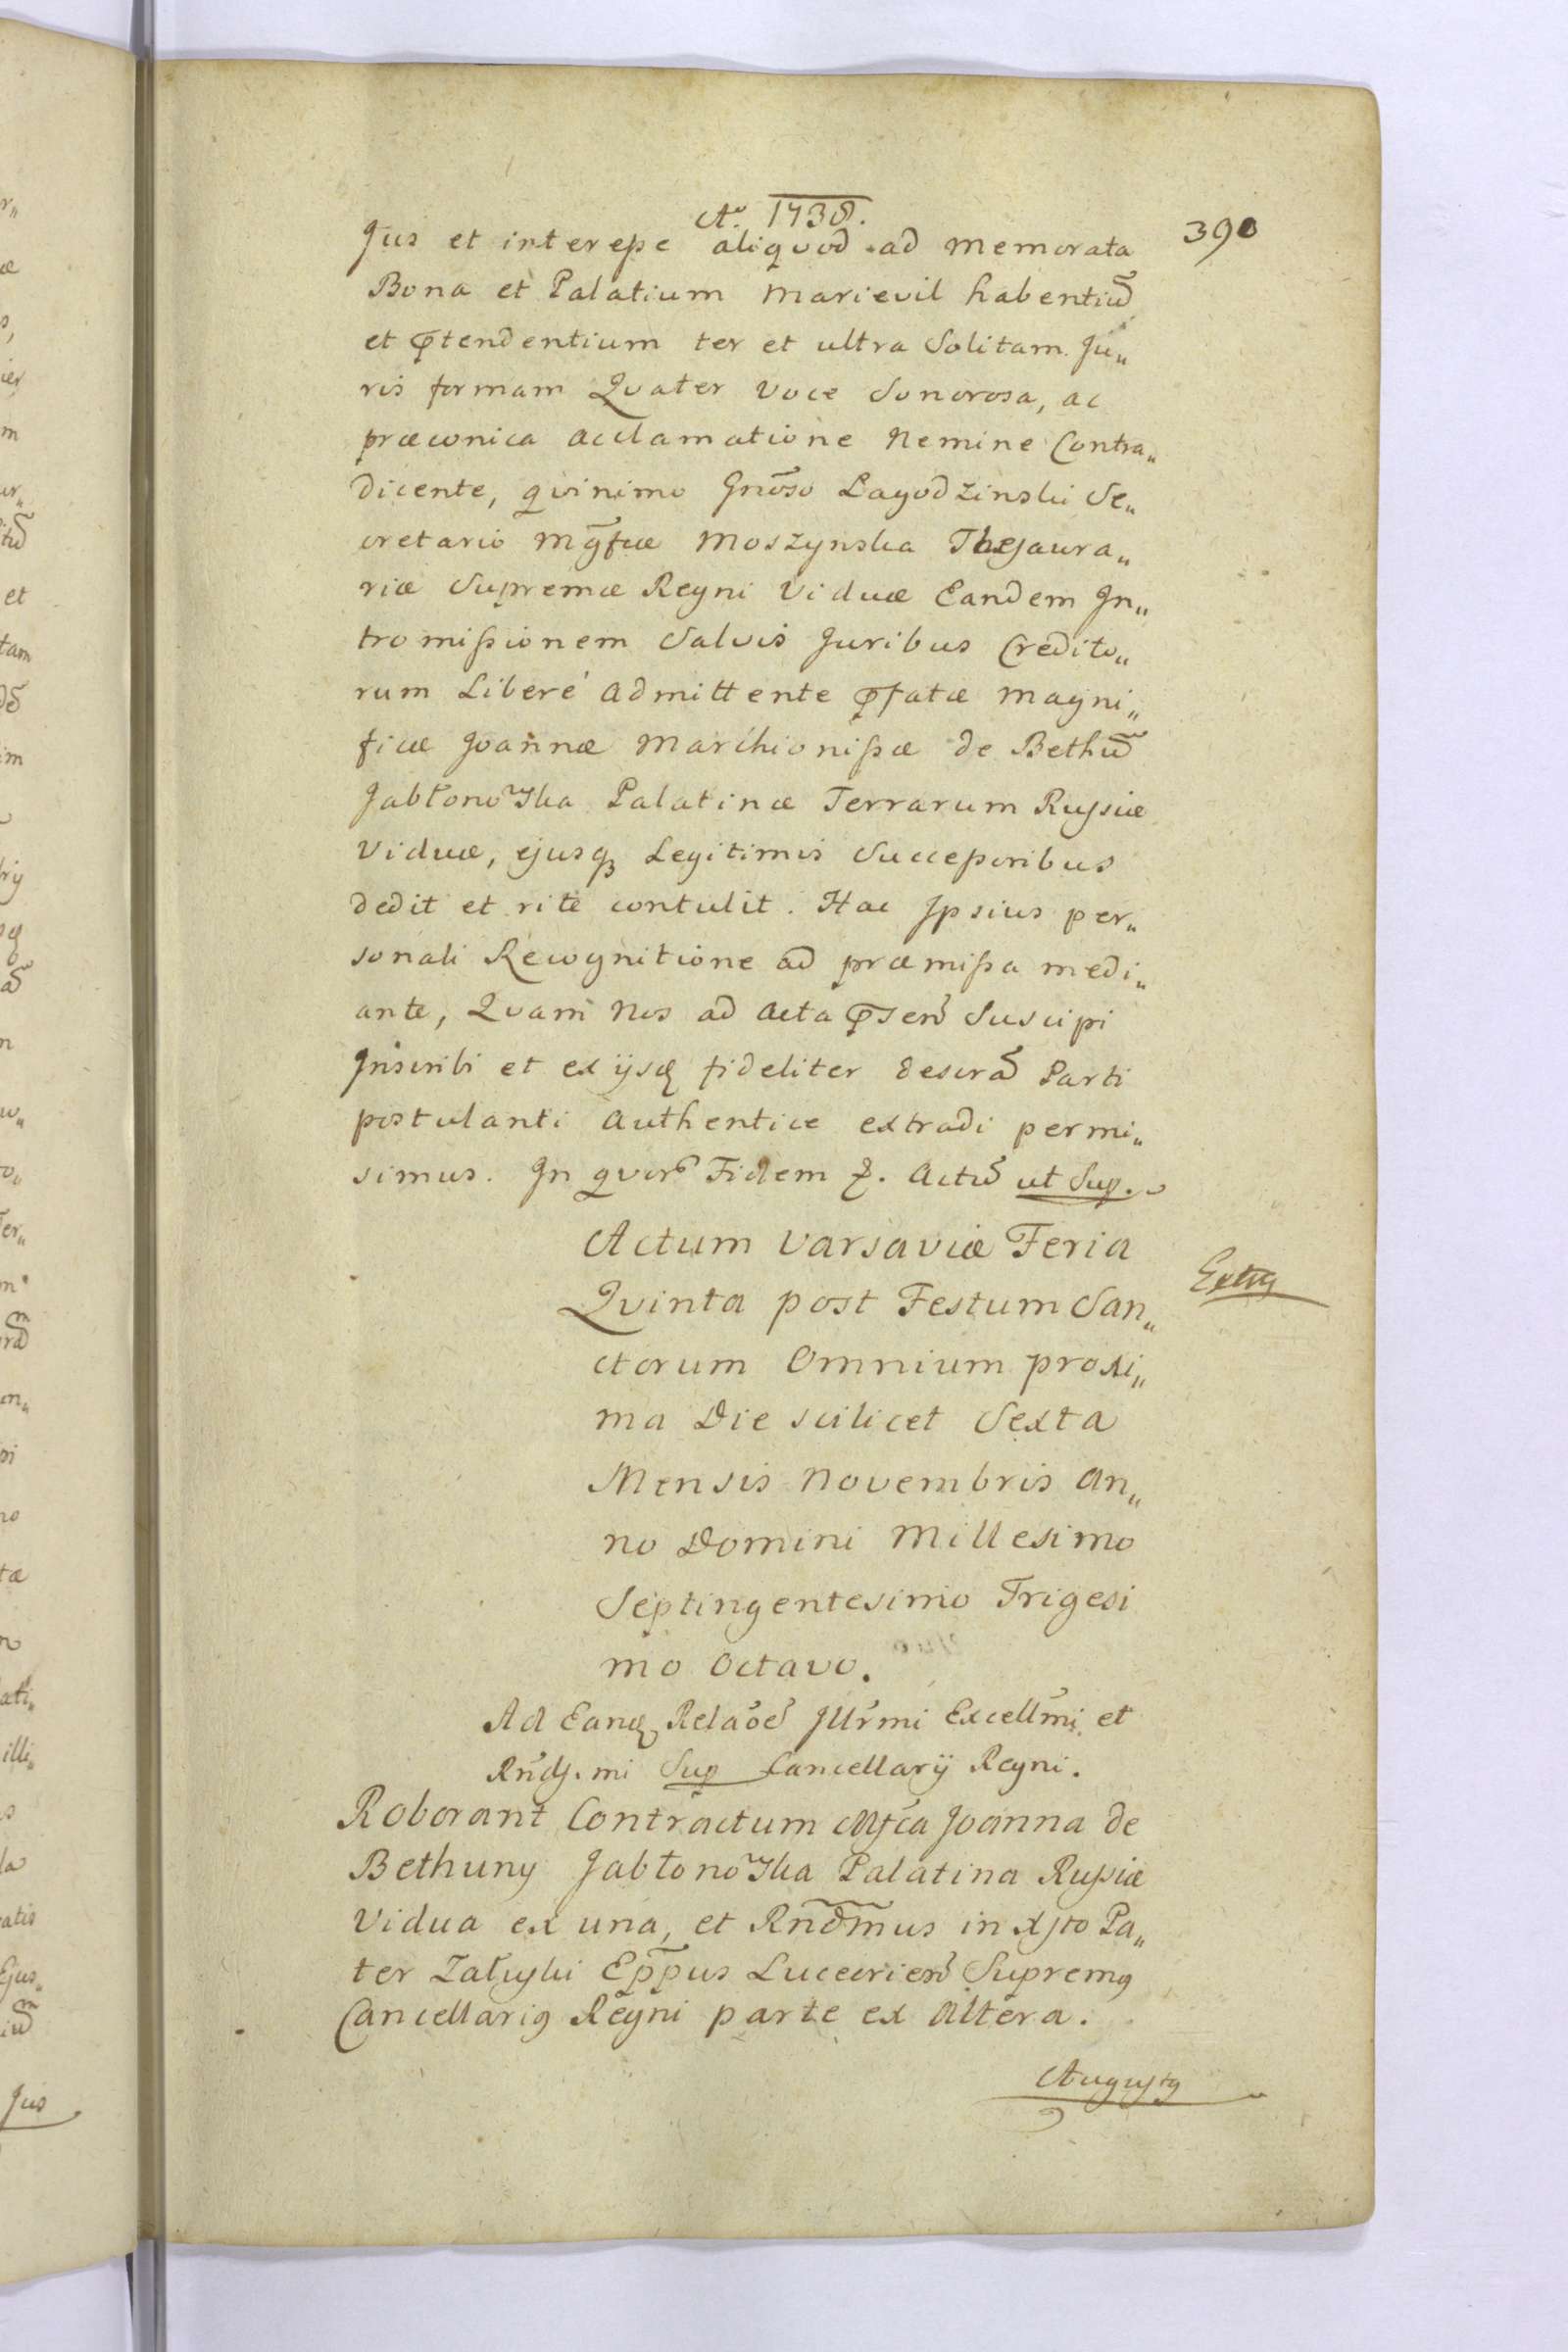 Ao. 1738.
390
Jus et interesse aliquod ad memorata
Bona et Palatium Marievil habentiu̅
et p̅tendentium ter et ultra Solitam Ju„
ris formam Quater voce Sonorosa, ac
præconica acclamatione Nemine Contra„
dicente, quinimo Gno̅so Łagodzinski Se„
cretario Mg̅fcæ Moszynska Thesaura„
riæ Supremæ Regni Viduæ Eandem In„
tromissionem Salvis Juribus Credito„
rum Liberé admittente p̅fatæ Magni„
ficæ Joannæ Marchionissæ de Bethu̅
Jabłonowska Palatinæ Terrarum Russiæ
Viduæ, ejusq3 Legitimis Successoribus
dedit et rité contulit. Hac Ipsius per„
sonali Recognitione ad præmissa medi„
ante, Quam Nos ad Acta p̅sen̅ Suscipi
Inscribi et ex ijsq3 fideliter descra̅ Parti
postulanti Authentice extradi permi„
simus. In quor̅ Fidem &. Actu̅ ut Sup.
Actum Varsaviæ Feria
Extrg
Quinta post Festum San„
ctorum Omnium proxi„
ma Die scilicet Sexta
Mensis Novembris An„
no Domini Millesimo
Septingentesimo Trigesi
mo Octavo.
Ad Eanq3 Relao̅e̅ Illr̅mi Excellm̅i et
Rn̅ds.mi Sup Cancellarij Regni.
Roborant Contractum Mf̅ca Joanna de
Bethuny Jabłonowska Palatina Russiæ
Vidua ex una, et Rnd̅mus in Xsto Pa„
ter Załuski Epp̅us Luceorien̅ Supremg
Cancellarig Regni parte ex Altera.
Augustg